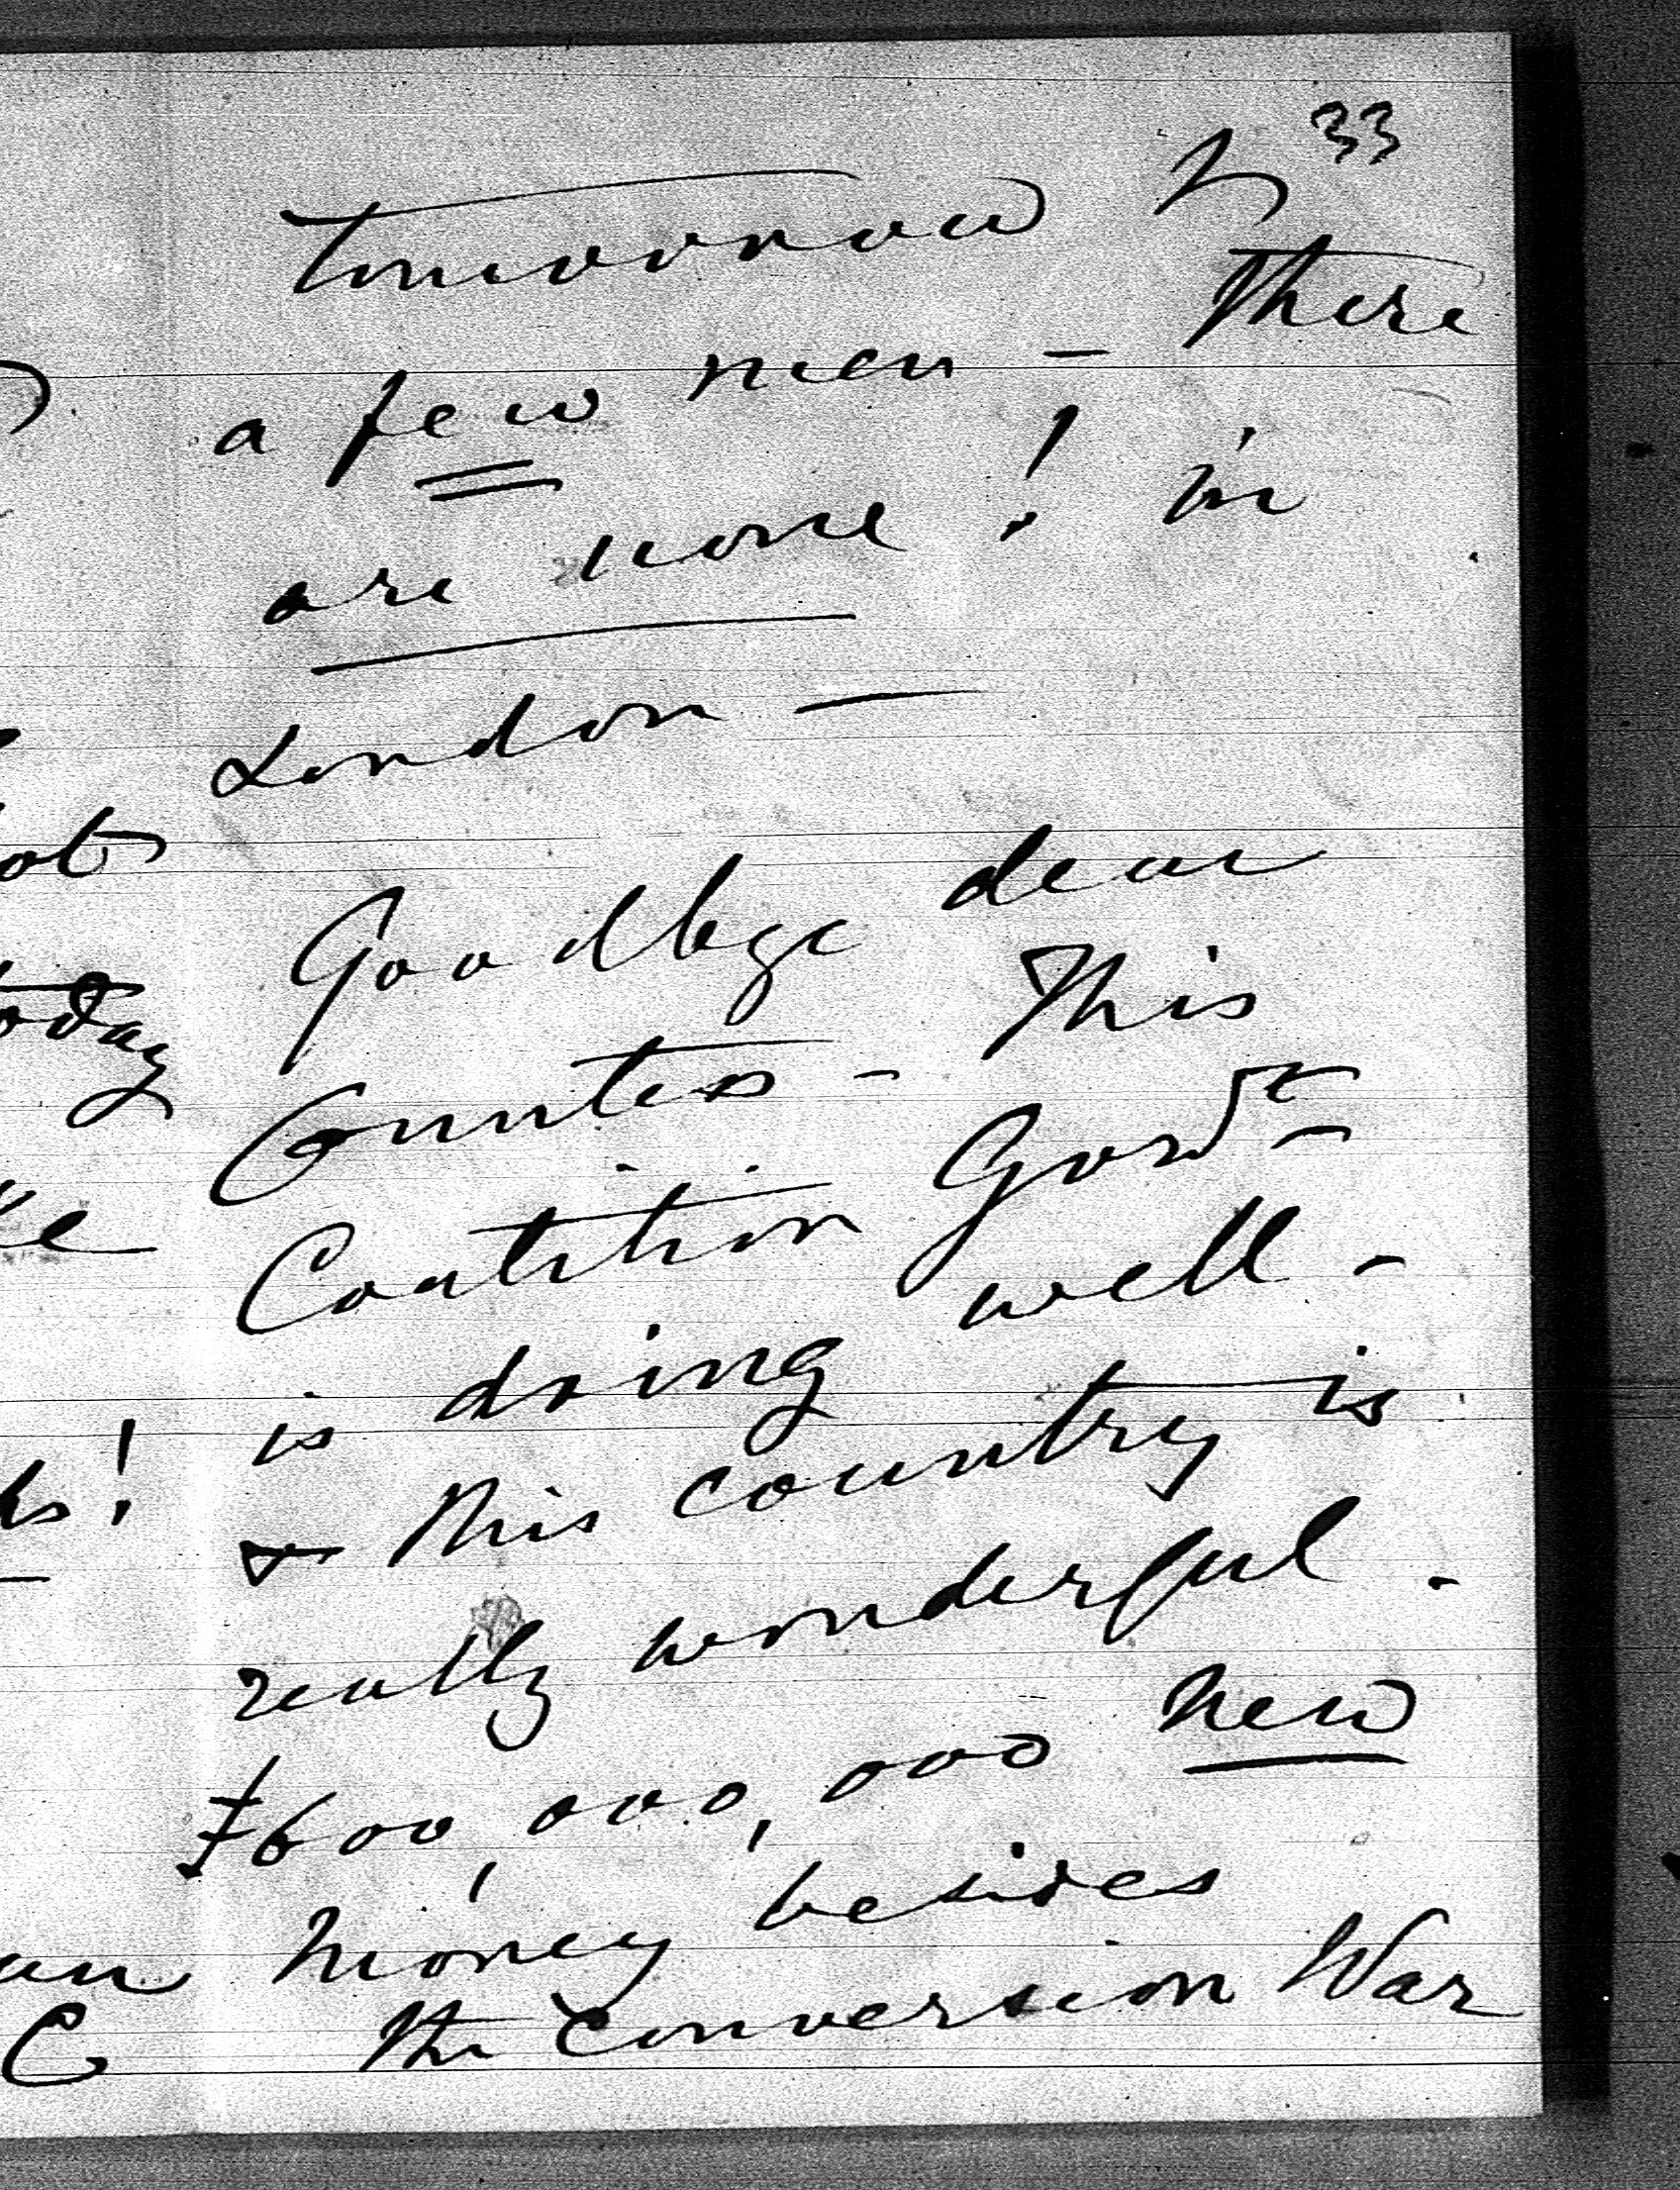 33
tomorrow &
a few men – There
are none! in
London —
Goodbye dear
Countess – This
Coalition Govt –
is doing well –
& this country is
really wonderful.
£600,000,000 new
money besides
the Conversion War
ot
today
ke
ks!
an
C